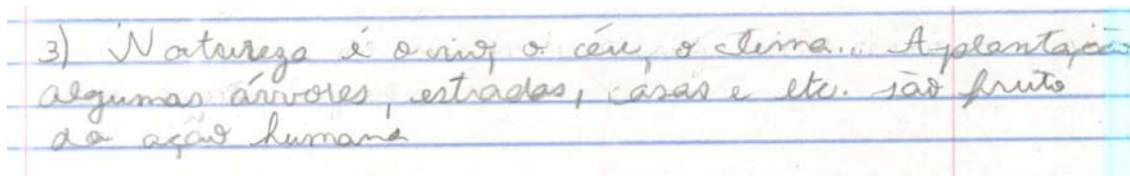 3) Natureza é o rio, o céu, o clima... A plantação
algumas árvores, estradas, casas e etc. são fruto
da ação humana